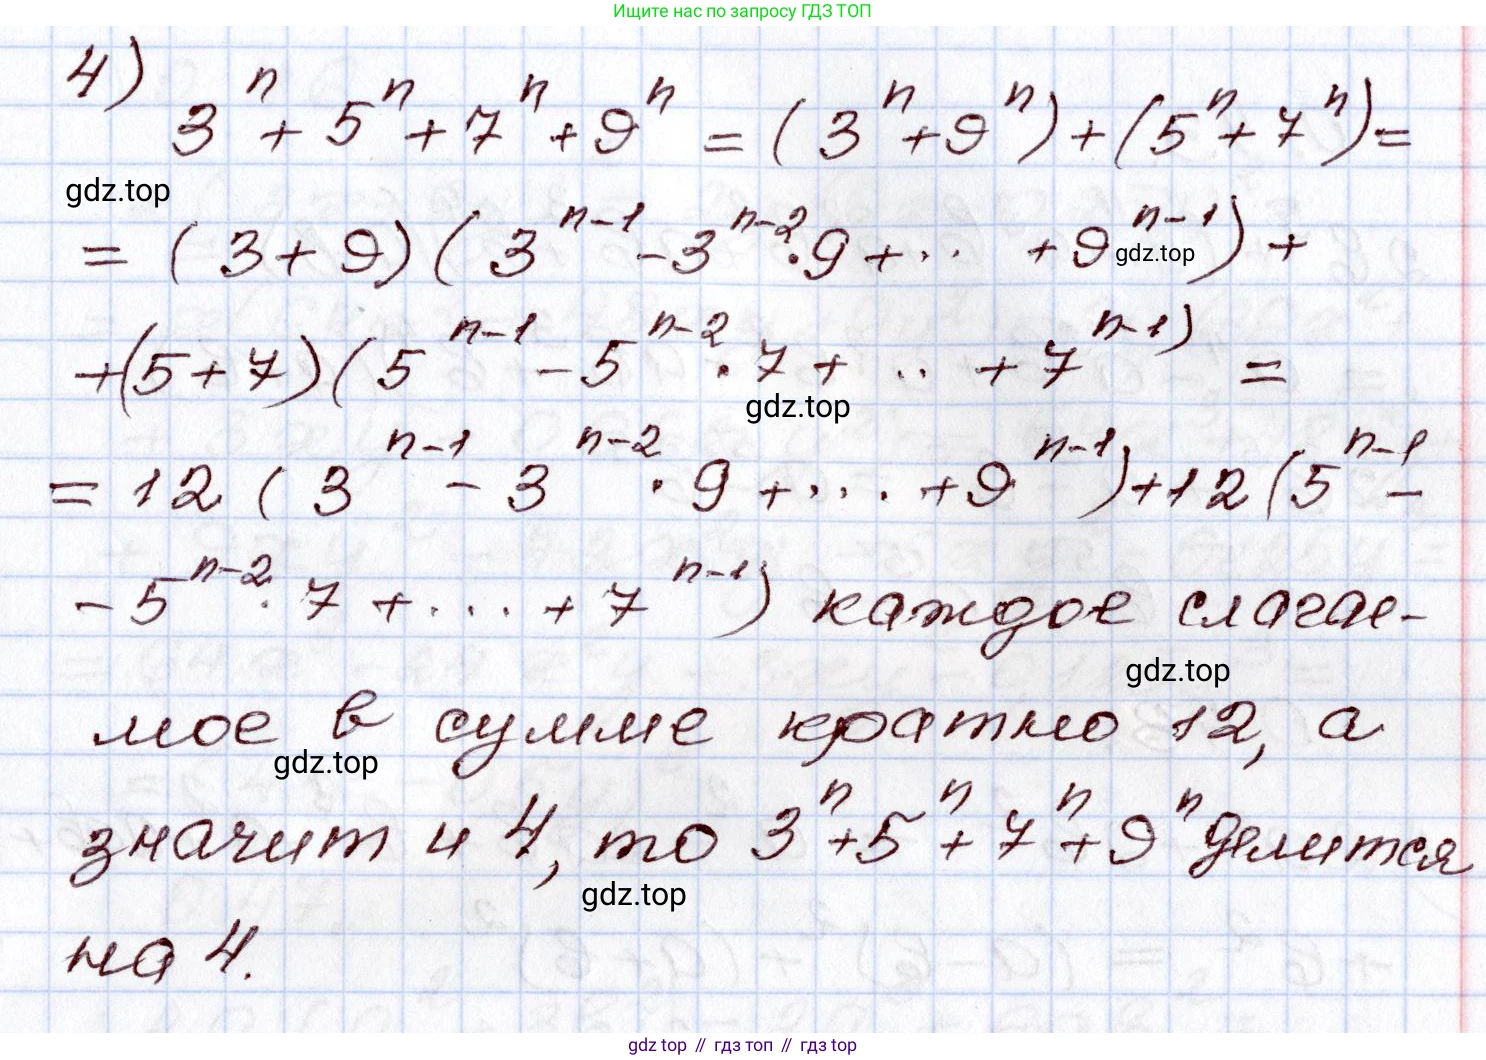 Ищите нас по запросу ГДЗ ТОП
4) 3ⁿ + 5ⁿ + 7ⁿ + 9ⁿ = (3ⁿ + 9ⁿ) + (5ⁿ + 7ⁿ) =
gdz.top
= (3 + 9) (3ⁿ⁻¹ - 3ⁿ⁻² · 9 + .. + 9ⁿ⁻¹) +
gdz.top
+ (5 + 7) (5ⁿ⁻¹ - 5ⁿ⁻² · 7 + .. + 7ⁿ⁻¹) =
gdz.top
= 12 (3ⁿ⁻¹ - 3ⁿ⁻² · 9 + .... + 9ⁿ⁻¹) + 12 (5ⁿ⁻¹ -
- 5ⁿ⁻² · 7 + .... + 7ⁿ⁻¹) каждое слагае-
gdz.top
мое в сумме кратно 12, а
gdz.top
значит и 4, то 3ⁿ + 5ⁿ + 7ⁿ + 9ⁿ делится
gdz.top
на 4.
gdz top // гдз топ // гдз top